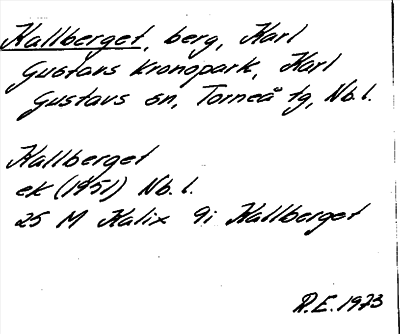 Kallberget, berg, Karl
Gustavs kronopark, Karl
Gustavs sn, Torneå tg, Nb.l.
Kallberget
ek (1951) Nb. l.
25 M Kalix 9i Kallberget
R.E. 1973